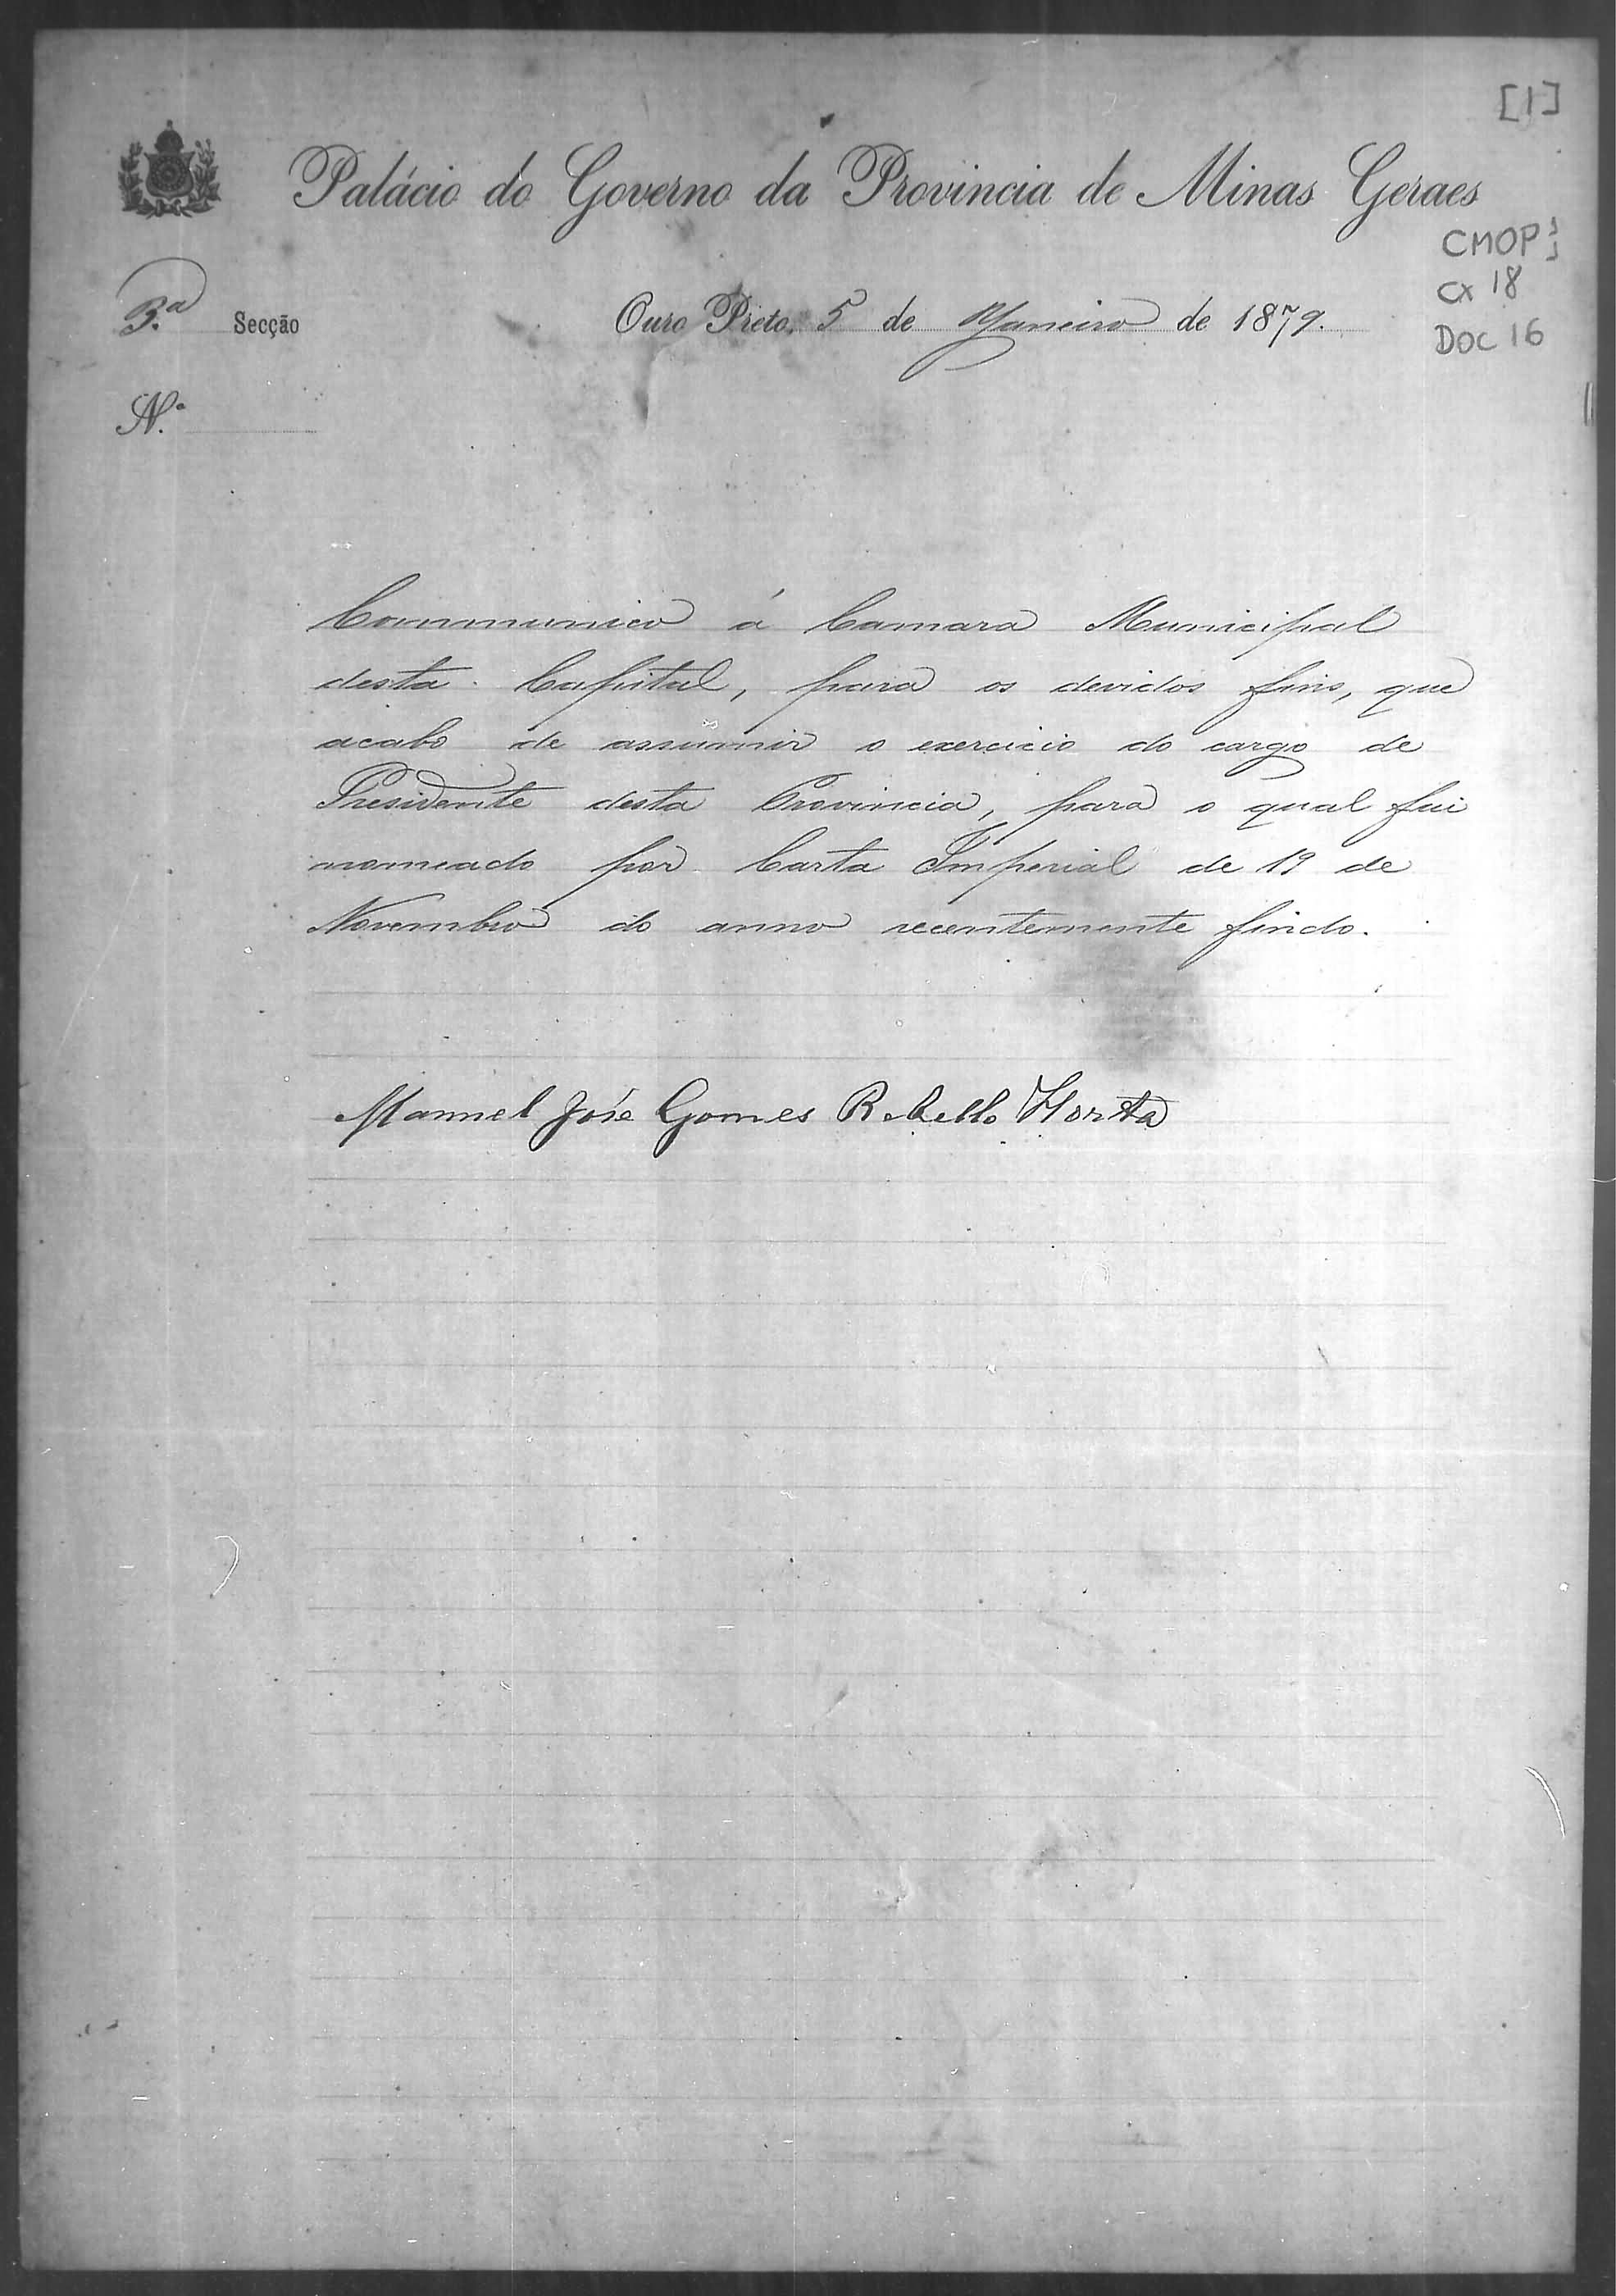 [1]
Palácio do Governo da Provincia de Minas Geraes
CMOP
CX 18
DOC 16
3.ª Secção
Ouro Preto, 5 de Janeiro de 1879.
N.º
Communico á Camara Municipal
desta Capital, para os devidos fins, que
acabo de assumir o exercicio do cargo de
Presidente desta Provincia, para o qual fui
nomeado por Carta Imperial de 19 de
Novembro do anno recentemente findo.
Manuel José Gomes Rebello Horta